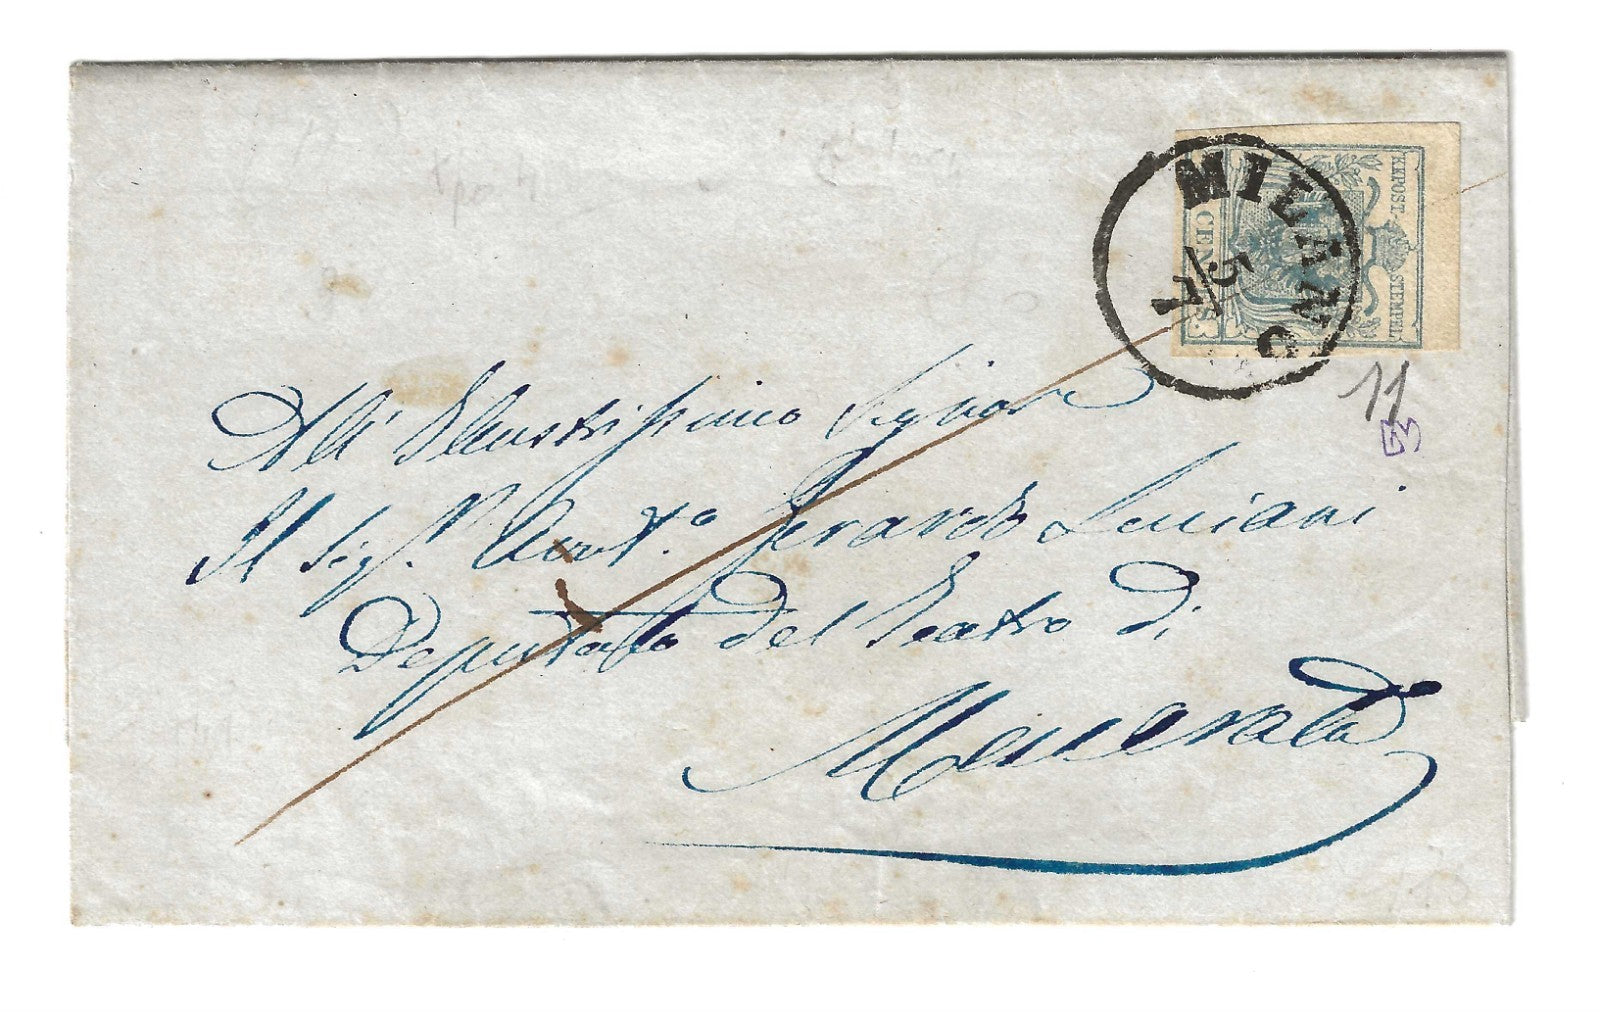 MILANO
5/7
KKPOST-STEMPEL
CENTES.
11
All' Illustrissimo Signore
Il Sig.r Avvt.o Gerardo Luciani
Deputato del Teatro di
Macerata